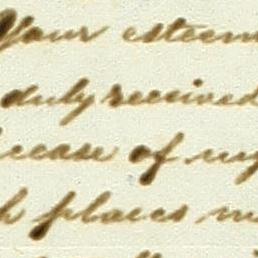 Your esteem
duly received
ecease of my
h places m